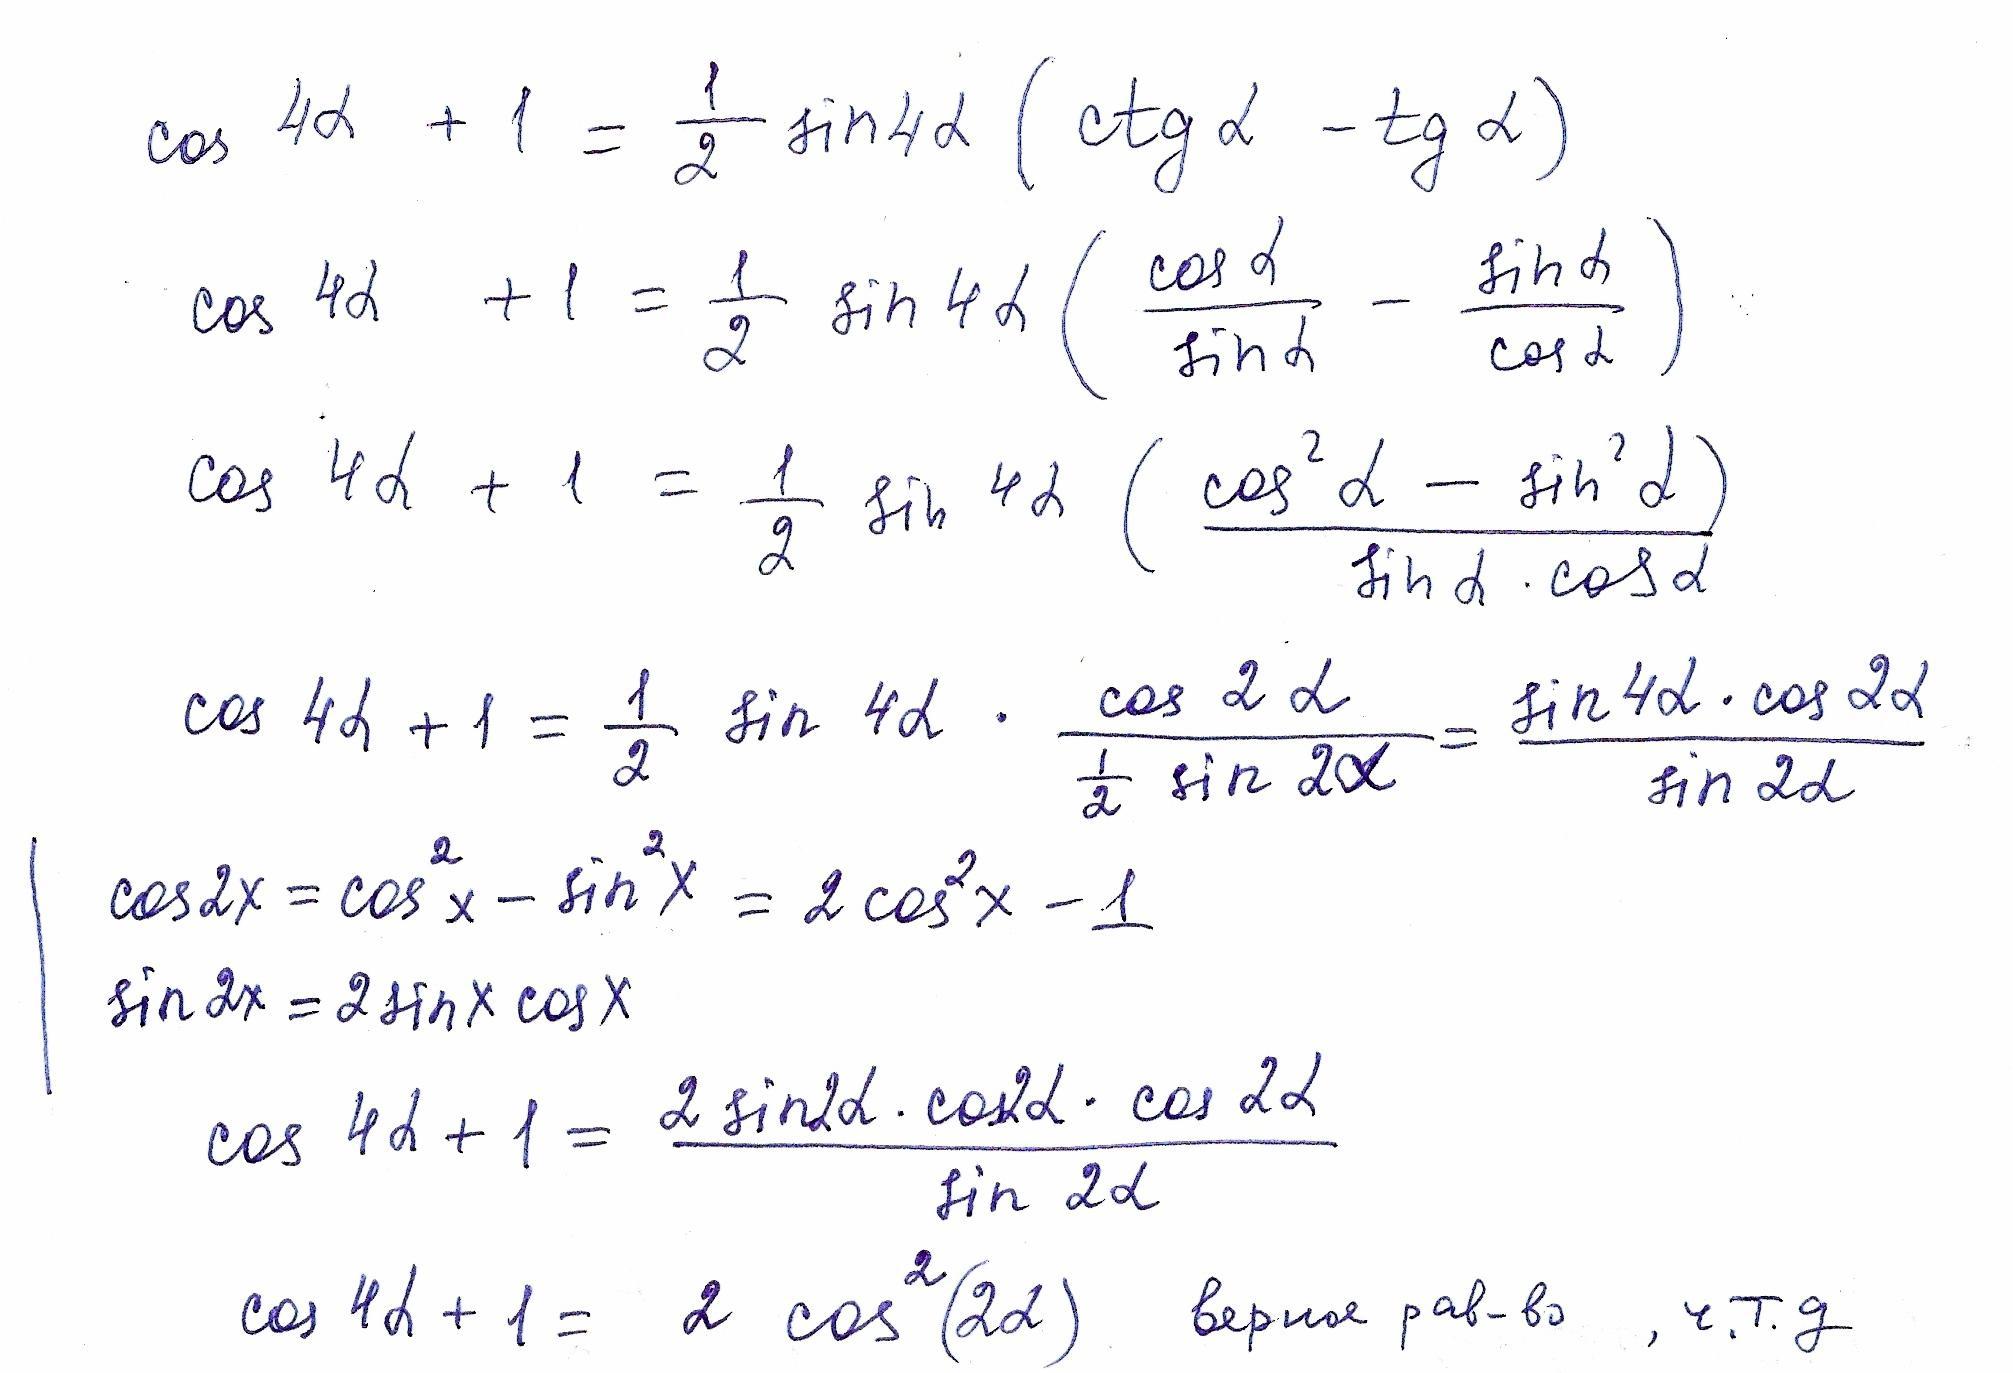 cos 4α + 1 = 1/2 sin4α ( ctg α - tg α )
cos 4α + 1 = 1/2 sin 4α ( cos α / sin α - sin α / cos α )
cos 4α + 1 = 1/2 sin 4α ( cos² α - sin² α ) / sin α · cos α
cos 4α + 1 = 1/2 sin 4α · cos 2α / 1/2 sin 2α = sin 4α · cos 2α / sin 2α
cos2x = cos²x - sin²x = 2cos²x - 1
sin2x = 2sinx cosx
cos 4α + 1 = 2 sin2α · cos2α · cos 2α / sin 2α
cos 4α + 1 = 2 cos²(2α) верное рав-во , ч.т.д